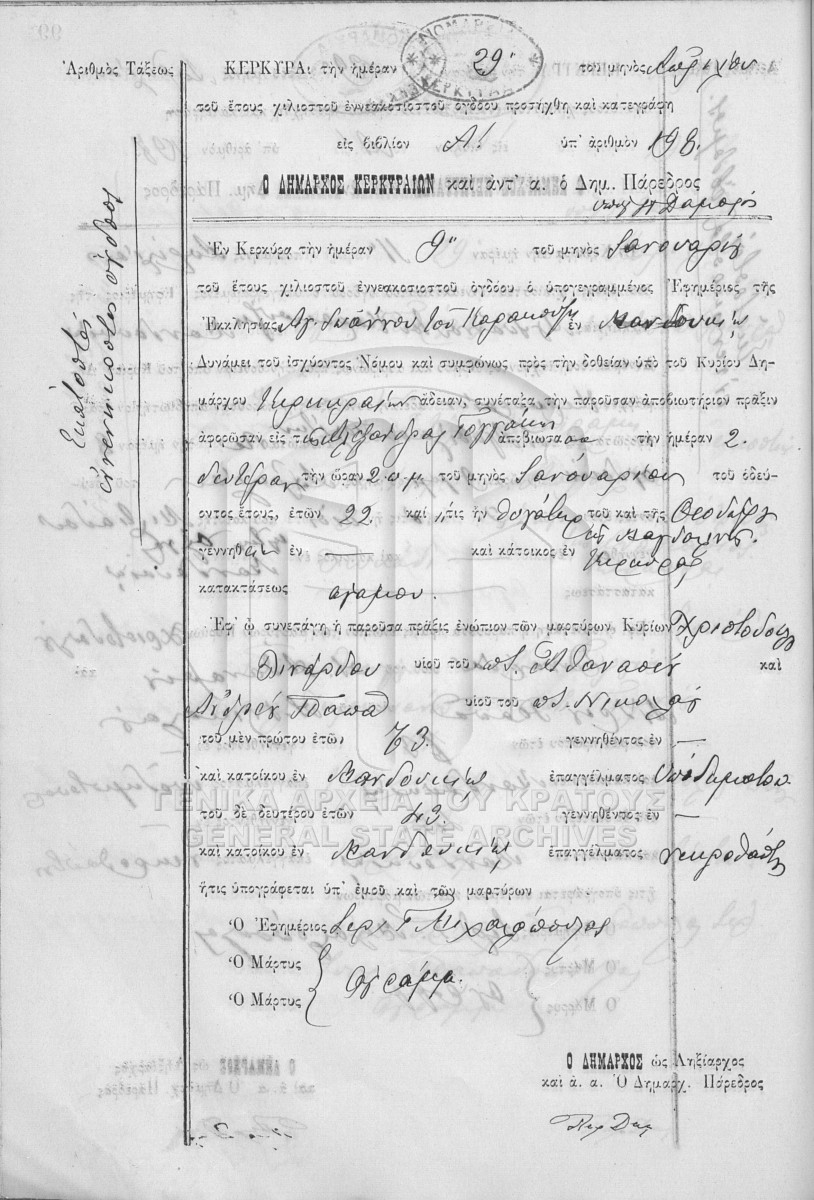 Ἀριθμὸς Τάξεως
Ἑκατοστός
ἐννενηκοστός ὄγδοος
ΝΟΜΑΡΧΙΑ ΚΕΡΚΥΡΑΣ
ΚΕΡΚΥΡΑι τὴν ἡμέραν 29 τοῦ μηνὸς Ἀπριλίου
τοῦ ἔτους χιλιοστοῦ ἐννεακοσιοστοῦ ὀγδόου προσήχθη καὶ κατεγράφη
εἰς βιβλίον Α! ὑπ' ἀριθμὸν 198.
Ο ΔΗΜΑΡΧΟΣ ΚΕΡΚΥΡΑΙΩΝ καὶ ἀντ' α. ὁ Δημ. Πάρεδρος
Ἐν Κερκύρᾳ τὴν ἡμέραν 9 τοῦ μηνὸς Ἰανουαρίου
τοῦ ἔτους χιλιοστοῦ ἐννεακοσιοστοῦ ὀγδόου ὁ ὑπογεγραμμένος Ἐφημέριος τῆς
Ἐκκλησίας Ἁγ. Ἰωάννου τοῦ ἐν Μανδουκίῳ
Δυνάμει τοῦ ἰσχύοντος Νόμου καὶ συμφώνως πρὸς τὴν δοθεῖσαν ὑπὸ τοῦ Κυρίου Δη-
μάρχου Κερκυραίων ἄδειαν, συνέταξα τὴν παροῦσαν ἀποβιωτήριον πρᾶξιν
ἀφορῶσαν εἰς τ Ἀλεξάνδραν ἀποβιώσασα τὴν ἡμέραν 2.
δευτέραν τὴν ὥραν 2 π.μ. τοῦ μηνὸς Ἰανουαρίου τοῦ ὁδεύ-
οντος ἔτους, ἐτῶν 22. καί ἥτις ἦν θυγάτηρ τοῦ καὶ τῆς Θεοδώρου
γεννηθεῖσα ἐν — καὶ κάτοικος ἐν Κερκύρᾳ
κατακτάσεως ἀγάμου.
Ἐφ' ᾧ συνετάγη ἡ παροῦσα πρᾶξις ἐνώπιον τῶν μαρτύρων Κυρίων Χριστοδούλου
υἱοῦ τοῦ π. Ἀθανασίου καὶ
Ἀνδρέου Παπᾶ υἱοῦ τοῦ π. Νικολάου
τοῦ μὲν πρώτου ἐτῶν 63. γεννηθέντος ἐν —
καὶ κατοίκου ἐν Μανδουκίῳ ἐπαγγέλματος ὑποδηματοποιοῦ
τοῦ δὲ δευτέρου ἐτῶν 43. γεννηθέντος ἐν —
ΓΕΝΙΚΑ ΑΡΧΕΙΑ ΤΟΥ ΚΡΑΤΟΥΣ
GENERAL STATE ARCHIVES
καὶ κατοίκου ἐν Μανδουκίῳ ἐπαγγέλματος νεκροθάπτη
ἥτις ὑπογράφεται ὑπ' ἐμοῦ καὶ τῶν μαρτύρων
Ὁ Ἐφημέριος
Ὁ Μάρτυς
Ὁ Μάρτυς ἀγράμμ.
Ο ΔΗΜΑΡΧΟΣ ὡς Ληξίαρχος
καὶ ἀ. α. Ὁ Δημαρχ. Πάρεδρος